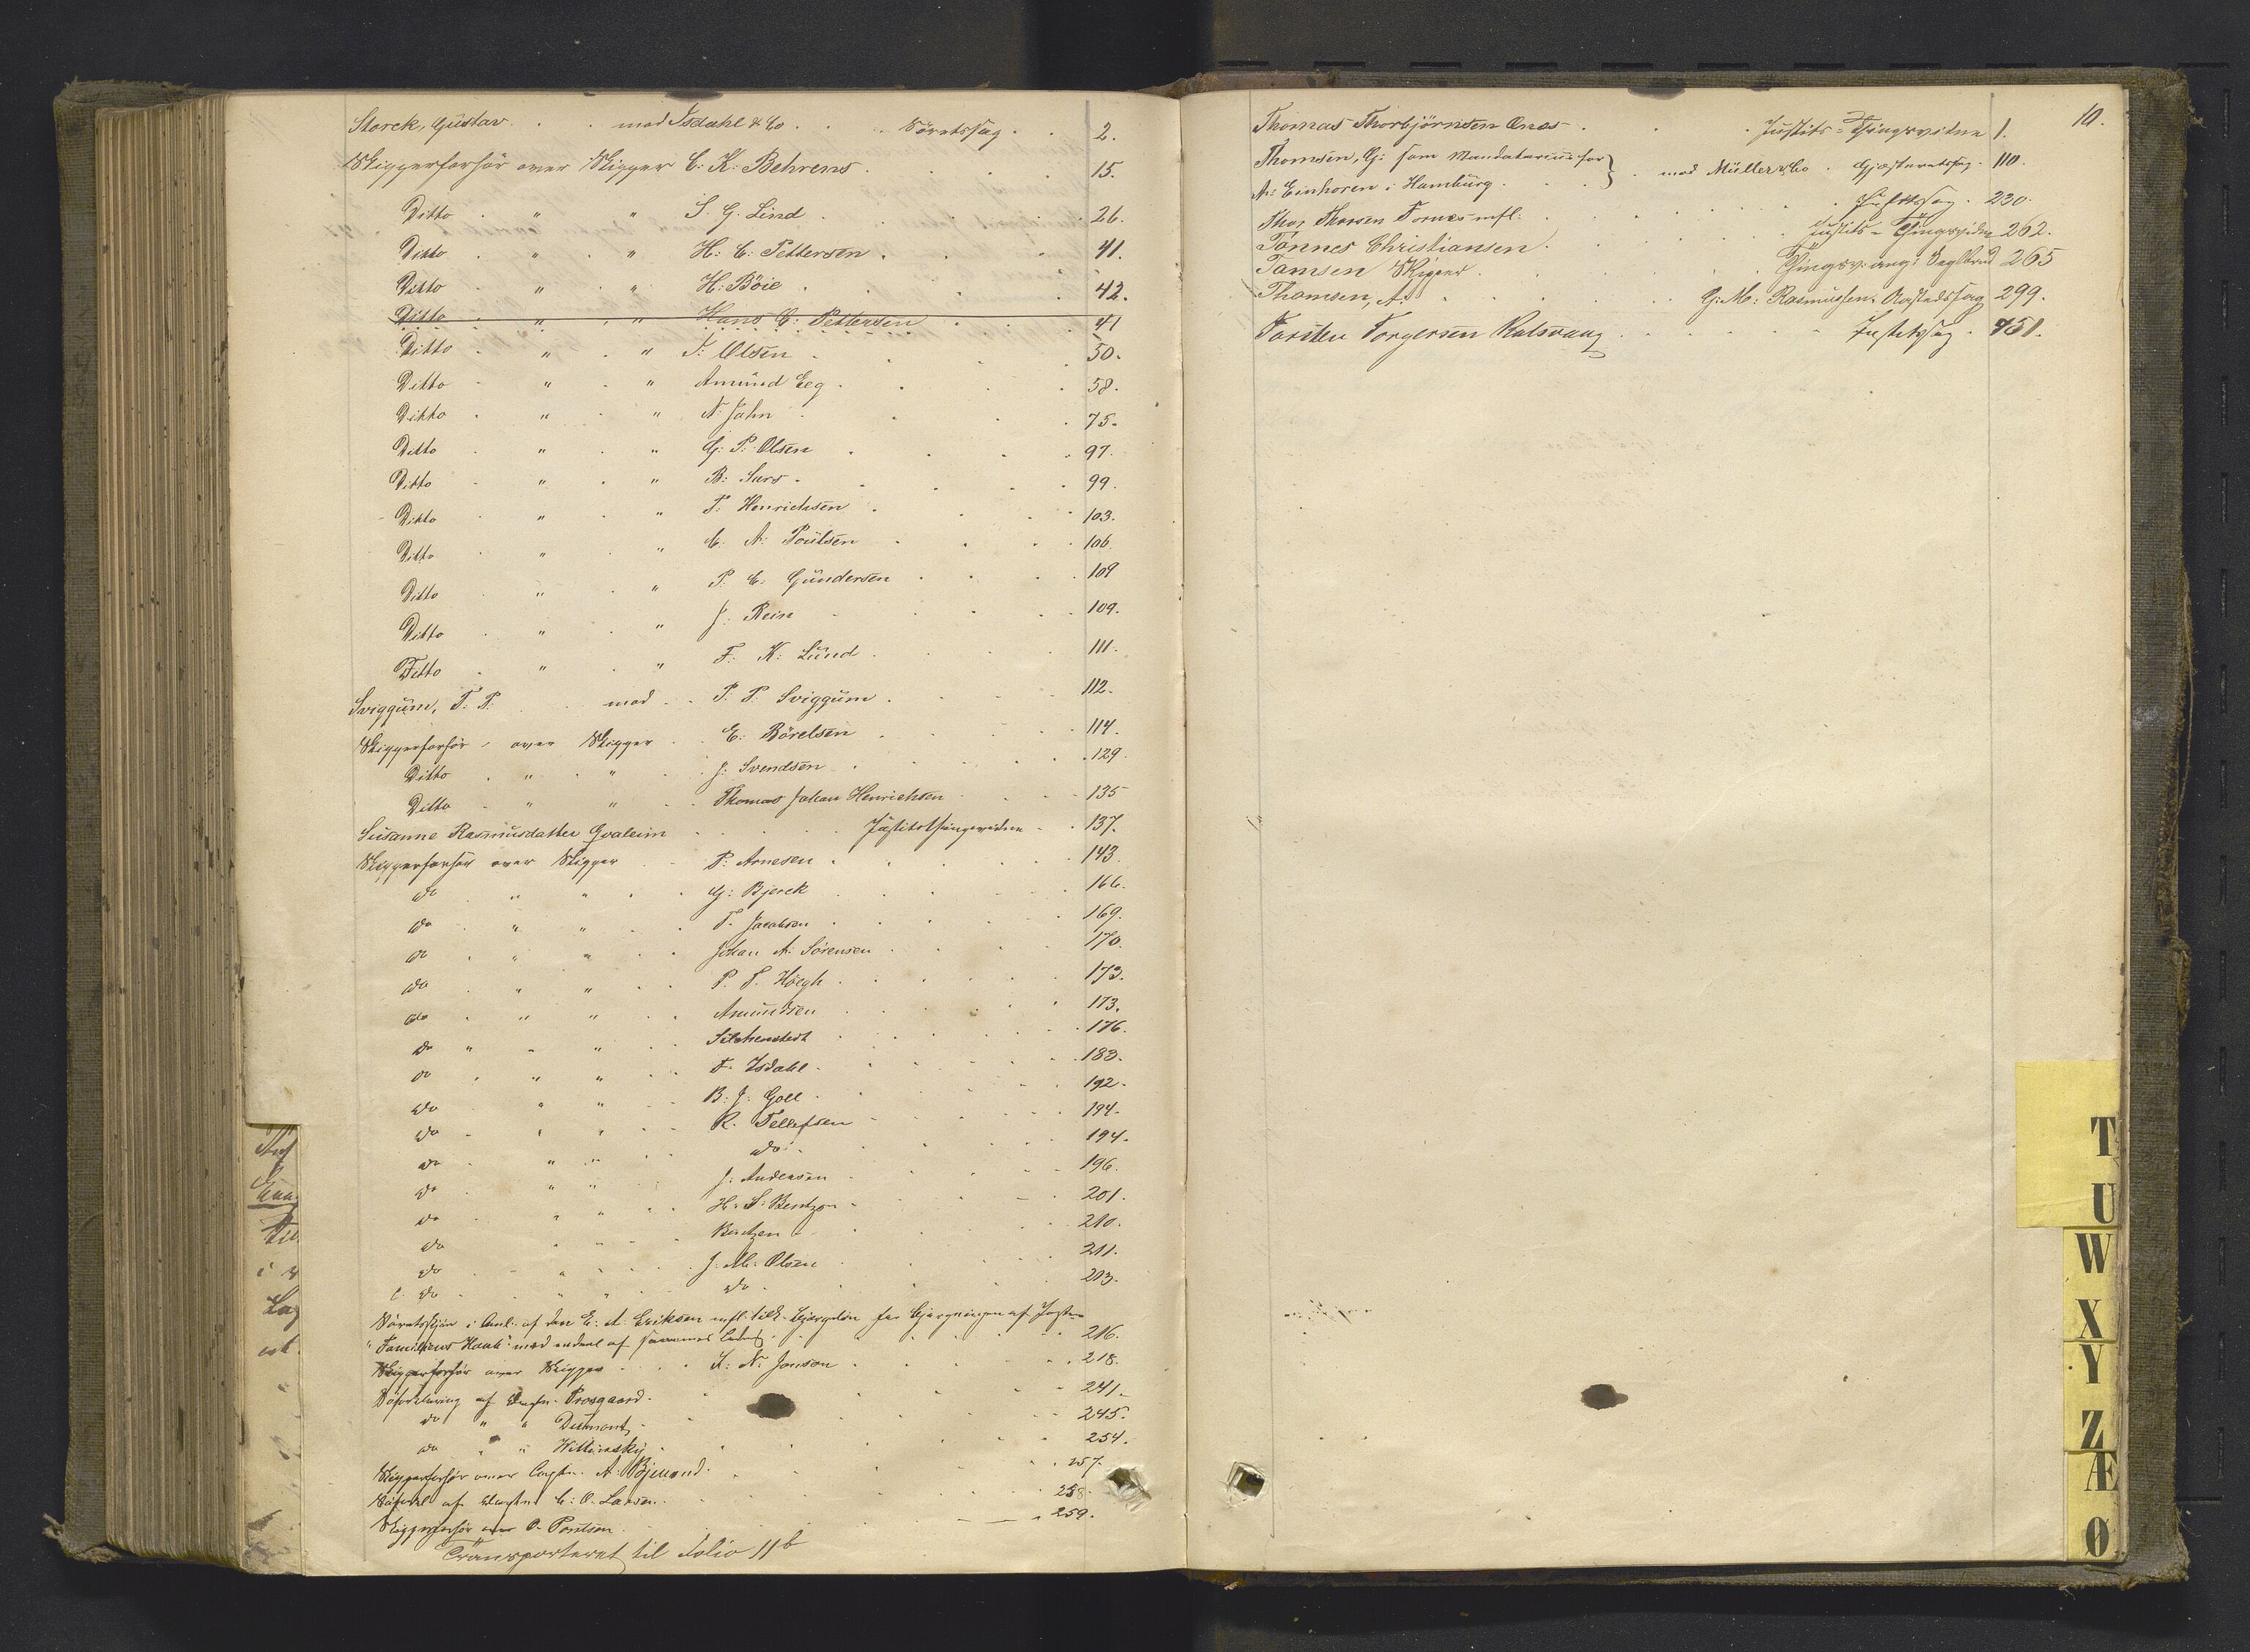 Storck, Gustav . . . mod Isdahl & Co . . . Söretssag . . 2.
Skipperforhör over Skipper C. K. Behrens . . . . 15.
Ditto . " " S. G. Lind . . . . 26.
Ditto . " " H: C: Pettersen . . . 41.
Ditto . " " H: Böie . . . . 42.
Ditto . " " Hans C: Pettersen . . . 41
Ditto . " " T: Olsen . . . . 50.
Ditto . " " Amünd Eeg . . . . 58.
Ditto . " " N: Jahn . . . . 75.
Ditto . " " G: P: Olsen . . . . 97.
Ditto . " " B: Surs . . . . 99.
Ditto . " " T: Henrichsen . . . 103.
Ditto . " " C. A: Poülsen . . . 106.
Ditto . " " P. C: Gündersen . . . 109
Ditto . " " J: Rein . . . . 109.
Ditto . " " F: K: Lünd . . . . 111.
Sviggüm, T. P. . . mod . . P. P. Sviggüm . . . 112.
Skipperforhör over Skipper . E: Börelsen . . . 114.
Ditto . " " J: Svendsen . . . 129.
Ditto . " " Thomas Johan Henrichsen . . . 135
Susanne Rasmusdatter Gvaleim . . . Justitsthingsvidne . . 137.
Skipperforhör over Skipper . . P: Arnesen . . . 143.
do . " " . G: Bjerck . . . 166.
do . " " . T. Jacobsen . . . 169.
do . " " . Johan A: Sörensen . . . 170.
do . " " . P. T. Höegh . . . 173.
do . " " . Amundsen . . . 173.
do . " " . 176.
do . " " . F. Isdahl . . . 183.
do . " " . B: J: Goll . . . 192.
do . " " . R. Tellefsen . . . 194.
do . " " . do . . . 194.
do . " " . J: Andersen . . . 196.
do . " " . H. S. Bentzon . . . 201.
do . " " . Bentzen . . . 210.
do . " " . J. M. Olsen . . . 211.
do . " " . do . . . 213.
Söretsskjön i Anl. af den E. A. Eriksen mfl. tilk. Bjergelön for Bjergningen af
"Familiens Haab" med endeel af sammes . . . 216.
Skipperforhör over Skipper . . . N: Jonson . . . 218.
Söforklaring af Capt. Prosgaard . . . 241.
do " " Dumont . . . 245.
do " " Wittinsky . . . 254.
Skipperforhör over Capt. A: . . . 257.
Söforkl af Capt. C: O. Larsen . . . 258.
Skipperforhör over O. . . . 259.
Transporteret til Folio 11b
10.
Thomas Thorbjörnsen Ones . . . Justits-Thingsvidne 1.
Thomsen, G: som Mandatarius for
A: Einhoren i Hamburg . . . } . mod Müller & Co . Gjæsteretssag . 110.
Thor Thorsen Tornes mfl. . . . Justitssag . 230.
Tönnes Christiansen . . . Justits-Thingsvidne 262.
Tomsen Skipper . . . Thingsv: ang: Seglbrud 265
Thomsen, A: . . . G: M: Rasmussen, Aastedssag 299.
Torsten Torgersen Kalsvaag . . . Justitssag . 451.
T
U
W
X
Y
Z
Æ
Ø